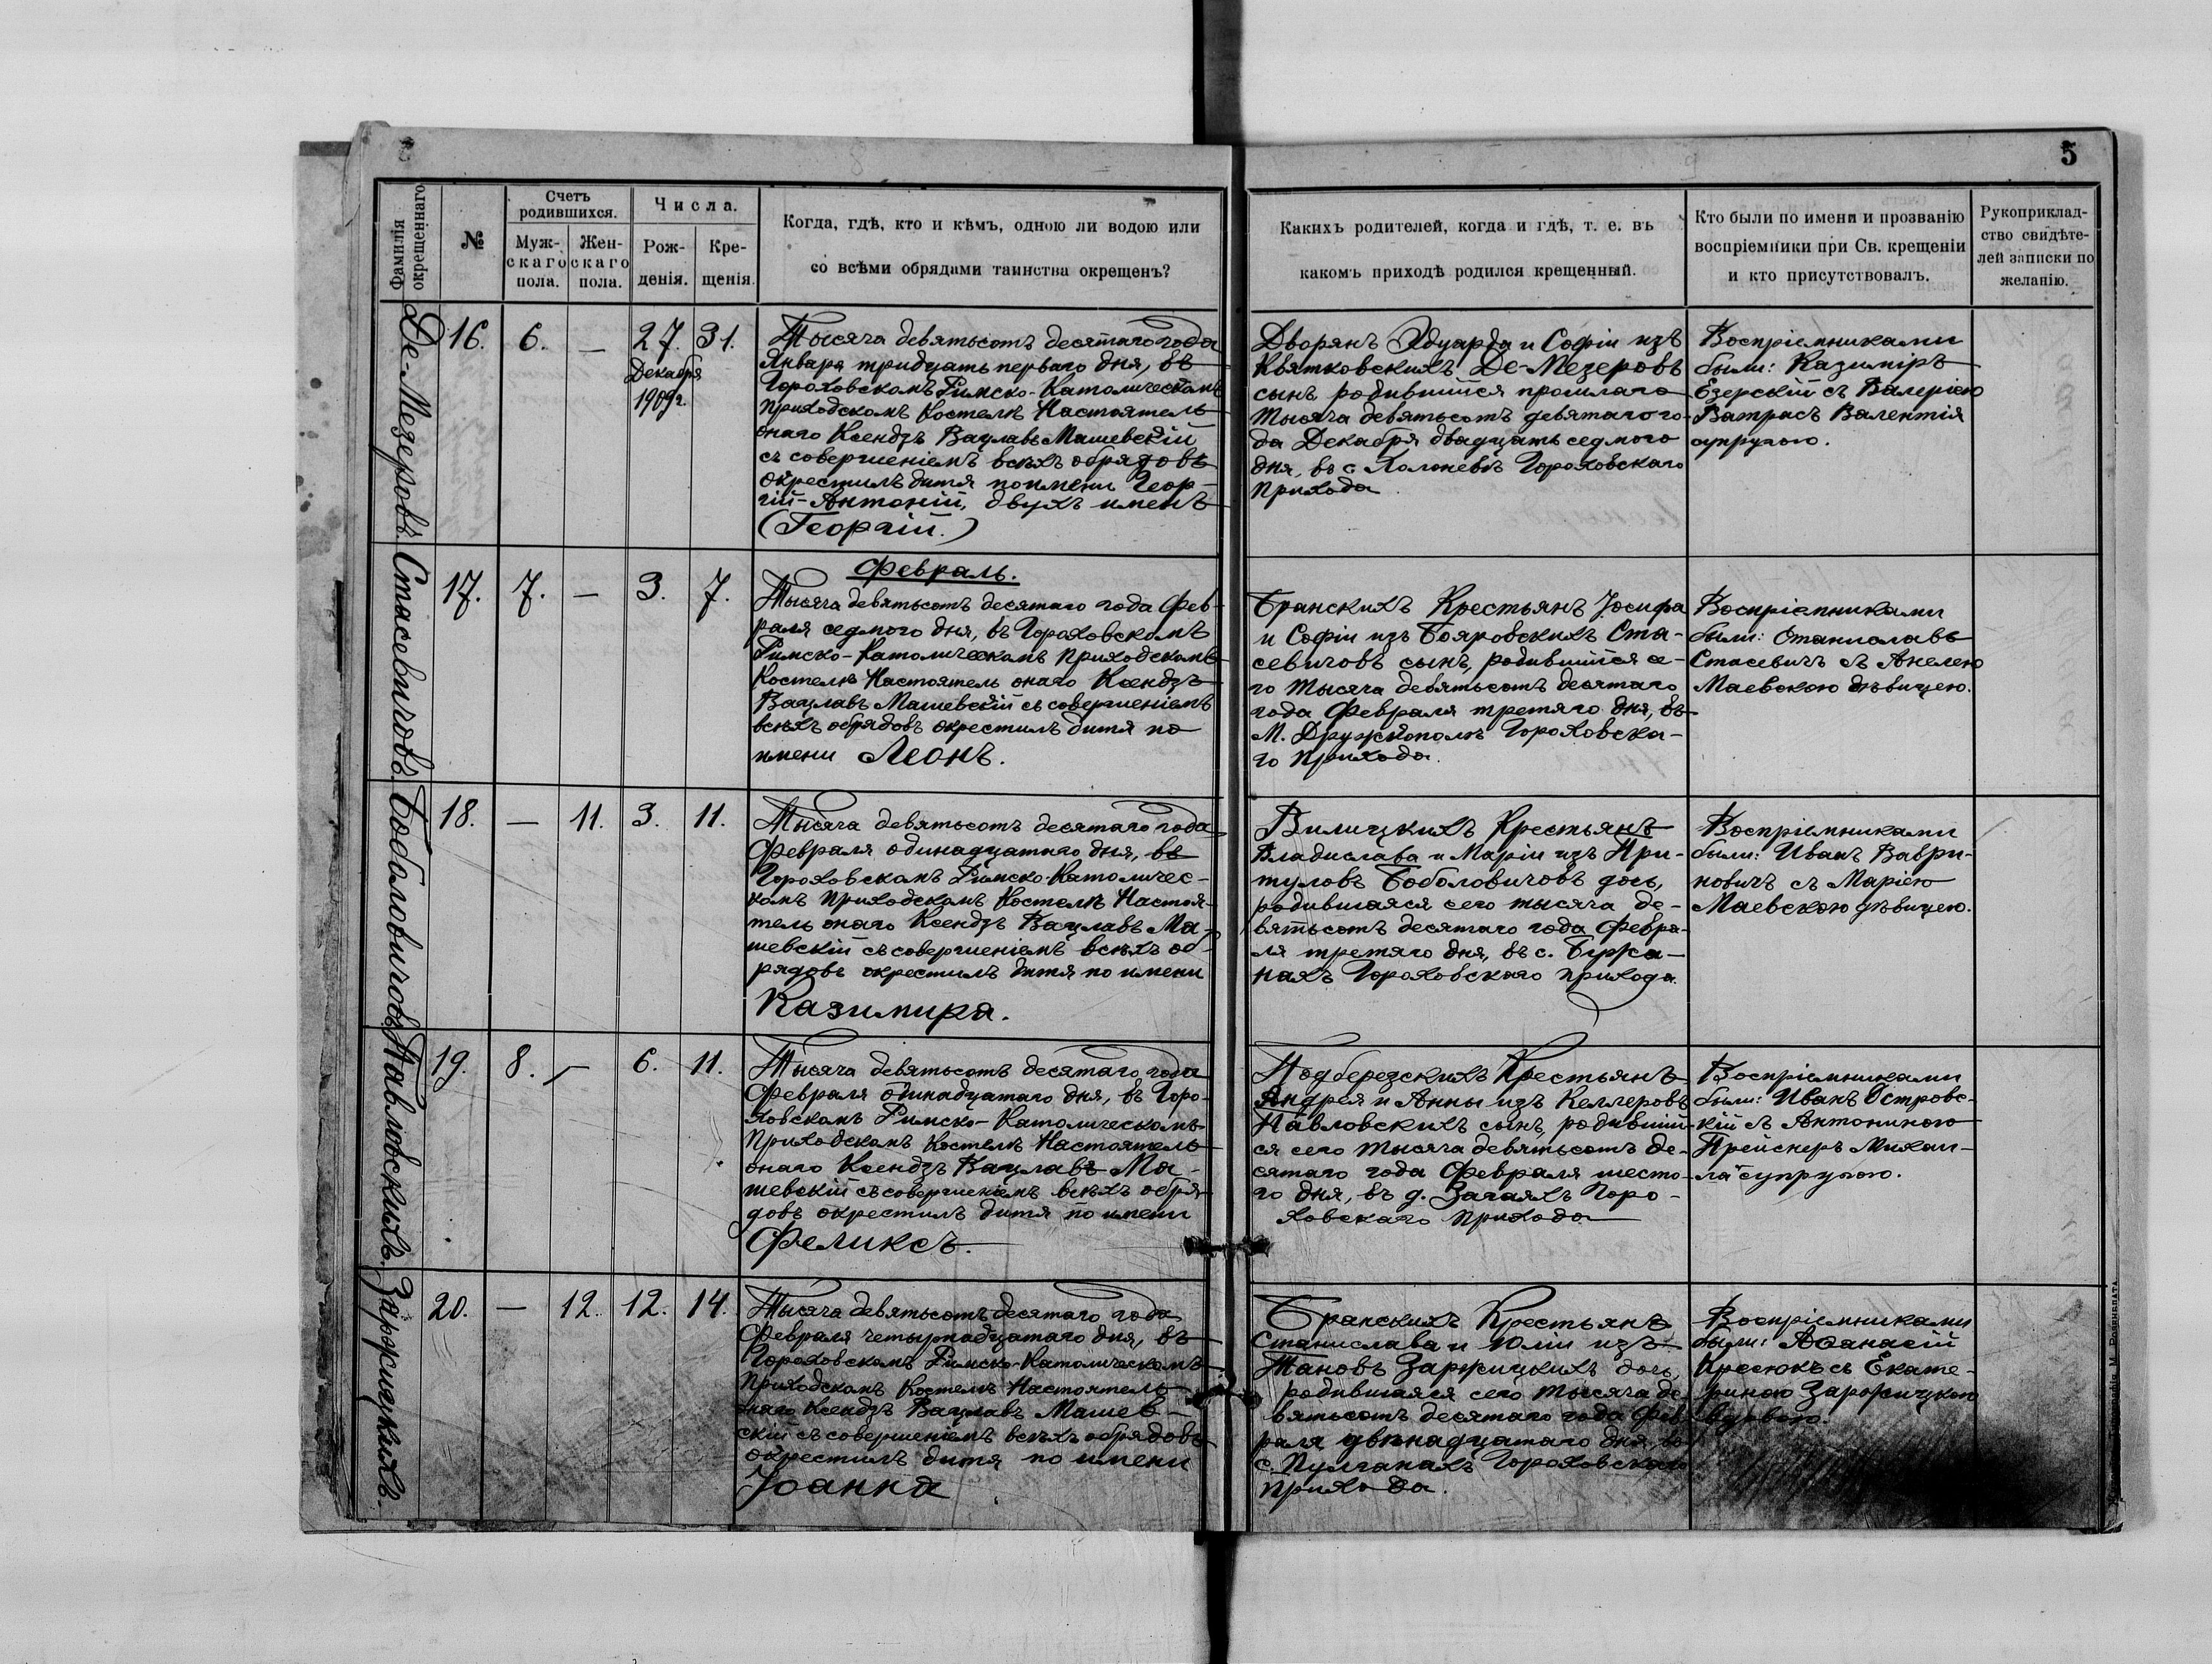 5
Фамилія окрещеннаго
№
Счетъ родившихся.
Мужскаго пола.
Женскаго пола.
Числа.
Рожденія.
Крещенія.
Когда, гдѣ, кто и кѣмъ, одною ли водою или
со всѣми обрядами таинства окрещенъ?
Какихъ родителей, когда и гдѣ, т. е. въ
какомъ приходѣ родился крещенный.
Кто были по имени и прозванію
воспріемники при Св. крещеніи
и кто присутствовалъ.
Рукоприклад-
ство свидѣте-
лей записки по
желанію.
Де-Мезеровъ.
16. 6. — 27. 31.
Декабря
1909 г.
Тысяча девятьсотъ десятаго года
Января тридцать перваго дня, въ
Гороховскомъ Римско-Католическомъ
Приходскомъ Костелѣ Настоятель
онаго Ксендзъ Вацлавъ Машевскій
съ совершеніемъ всѣхъ обрядовъ
окрестилъ дитя по имени Геор-
гій-Антоній, двухъ именъ
(Георгій.)
Дворянъ Эдуарда и Софіи изъ
Квятковскихъ Де-Мезеровъ
сынъ, родившійся прошлаго
тысяча девятьсотъ девятаго го-
да Декабря двадцать седмого
дня, въ с. Холоневѣ Гороховскаго
прихода.
Воспріемниками
были: Казиміръ
Езерскій съ Валеріею
Ватрасъ Валентія
супругою.
Стасевичовъ.
17. 7. — 3. 7.
Февраль.
Тысяча девятьсотъ десятаго года Фев-
раля седмого дня, въ Гороховскомъ
Римско-Католическомъ Приходскомъ
Костелѣ Настоятель онаго Ксендзъ
Вацлавъ Машевскій съ совершеніемъ
всѣхъ обрядовъ окрестилъ дитя по
имени Леонъ.
Бранскихъ Крестьянъ Іосифа
и Софіи изъ Бояровскихъ Ста-
севичовъ сынъ, родившійся се-
го тысяча девятьсотъ десятаго
года Февраля третяго дня, въ
М. Дружкополѣ Гороховска-
го прихода.
Воспріемниками
были: Станиславъ
Стасевичъ съ Анелею
Маевскою дѣвицею.
Боболовичовъ.
18. — 11. 3. 11.
Тысяча девятьсотъ десятаго года
Февраля одинадцатаго дня, въ
Гороховскомъ Римско-Католичес-
комъ Приходскомъ Костелѣ Настоя-
тель онаго Ксендзъ Вацлавъ Ма-
шевскій съ совершеніемъ всѣхъ об-
рядовъ окрестилъ дитя по имени
Казимира.
Вилицкихъ Крестьянъ
Владислава и Маріи изъ При-
туловъ Боболовичовъ дочь,
родившаяся сего тысяча де-
вятьсотъ десятаго года Февра-
ля третяго дня, въ с. Буржа-
нахъ Гороховскаго прихода.
Воспріемниками
были: Иванъ Ваври-
новичъ съ Маріею
Маевскою дѣвицею.
Павловскихъ.
19. 8. — 6. 11.
Тысяча девятьсотъ десятаго года
Февраля одинадцатаго дня, въ Горо-
ховскомъ Римско-Католическомъ
Приходскомъ Костелѣ Настоятель
онаго Ксендзъ Вацлавъ Ма-
шевскій съ совершеніемъ всѣхъ обря-
довъ окрестилъ дитя по имени
Феликсъ.
Подберезскихъ Крестьянъ
Андрея и Анны изъ Келлеровъ
Павловскихъ сынъ, родившій-
ся сего тысяча девятьсотъ де-
сятаго года Февраля шесто-
го дня, въ д. Загаяхъ Горо-
ховскаго прихода
Воспріемниками
были: Иванъ Островс-
кій съ Антониною
Прейснеръ Михаи-
ла супругою.
Заржицкихъ.
20. — 12. 12. 14.
Тысяча девятьсотъ десятаго года
Февраля четырнадцатаго дня, въ
Гороховскомъ Римско-Католическомъ
Приходскомъ Костелѣ Настоятель
онаго Ксендзъ Вацлавъ Машев-
скій съ совершеніемъ всѣхъ обрядовъ
окрестилъ дитя по имени
Іоанна
Бранскихъ Крестьянъ
Станислава и Юліи изъ
Тановъ Заржицкихъ дочь,
родившаяся сего тысяча де-
вятьсотъ десятаго года Фев-
раля двѣнадцатаго дня, въ
с. Пулганахъ Гороховскаго
прихода.
Воспріемниками
были: Аѳанасій
Кресюкъ съ Екате-
риною Заржицкою
вдовою.